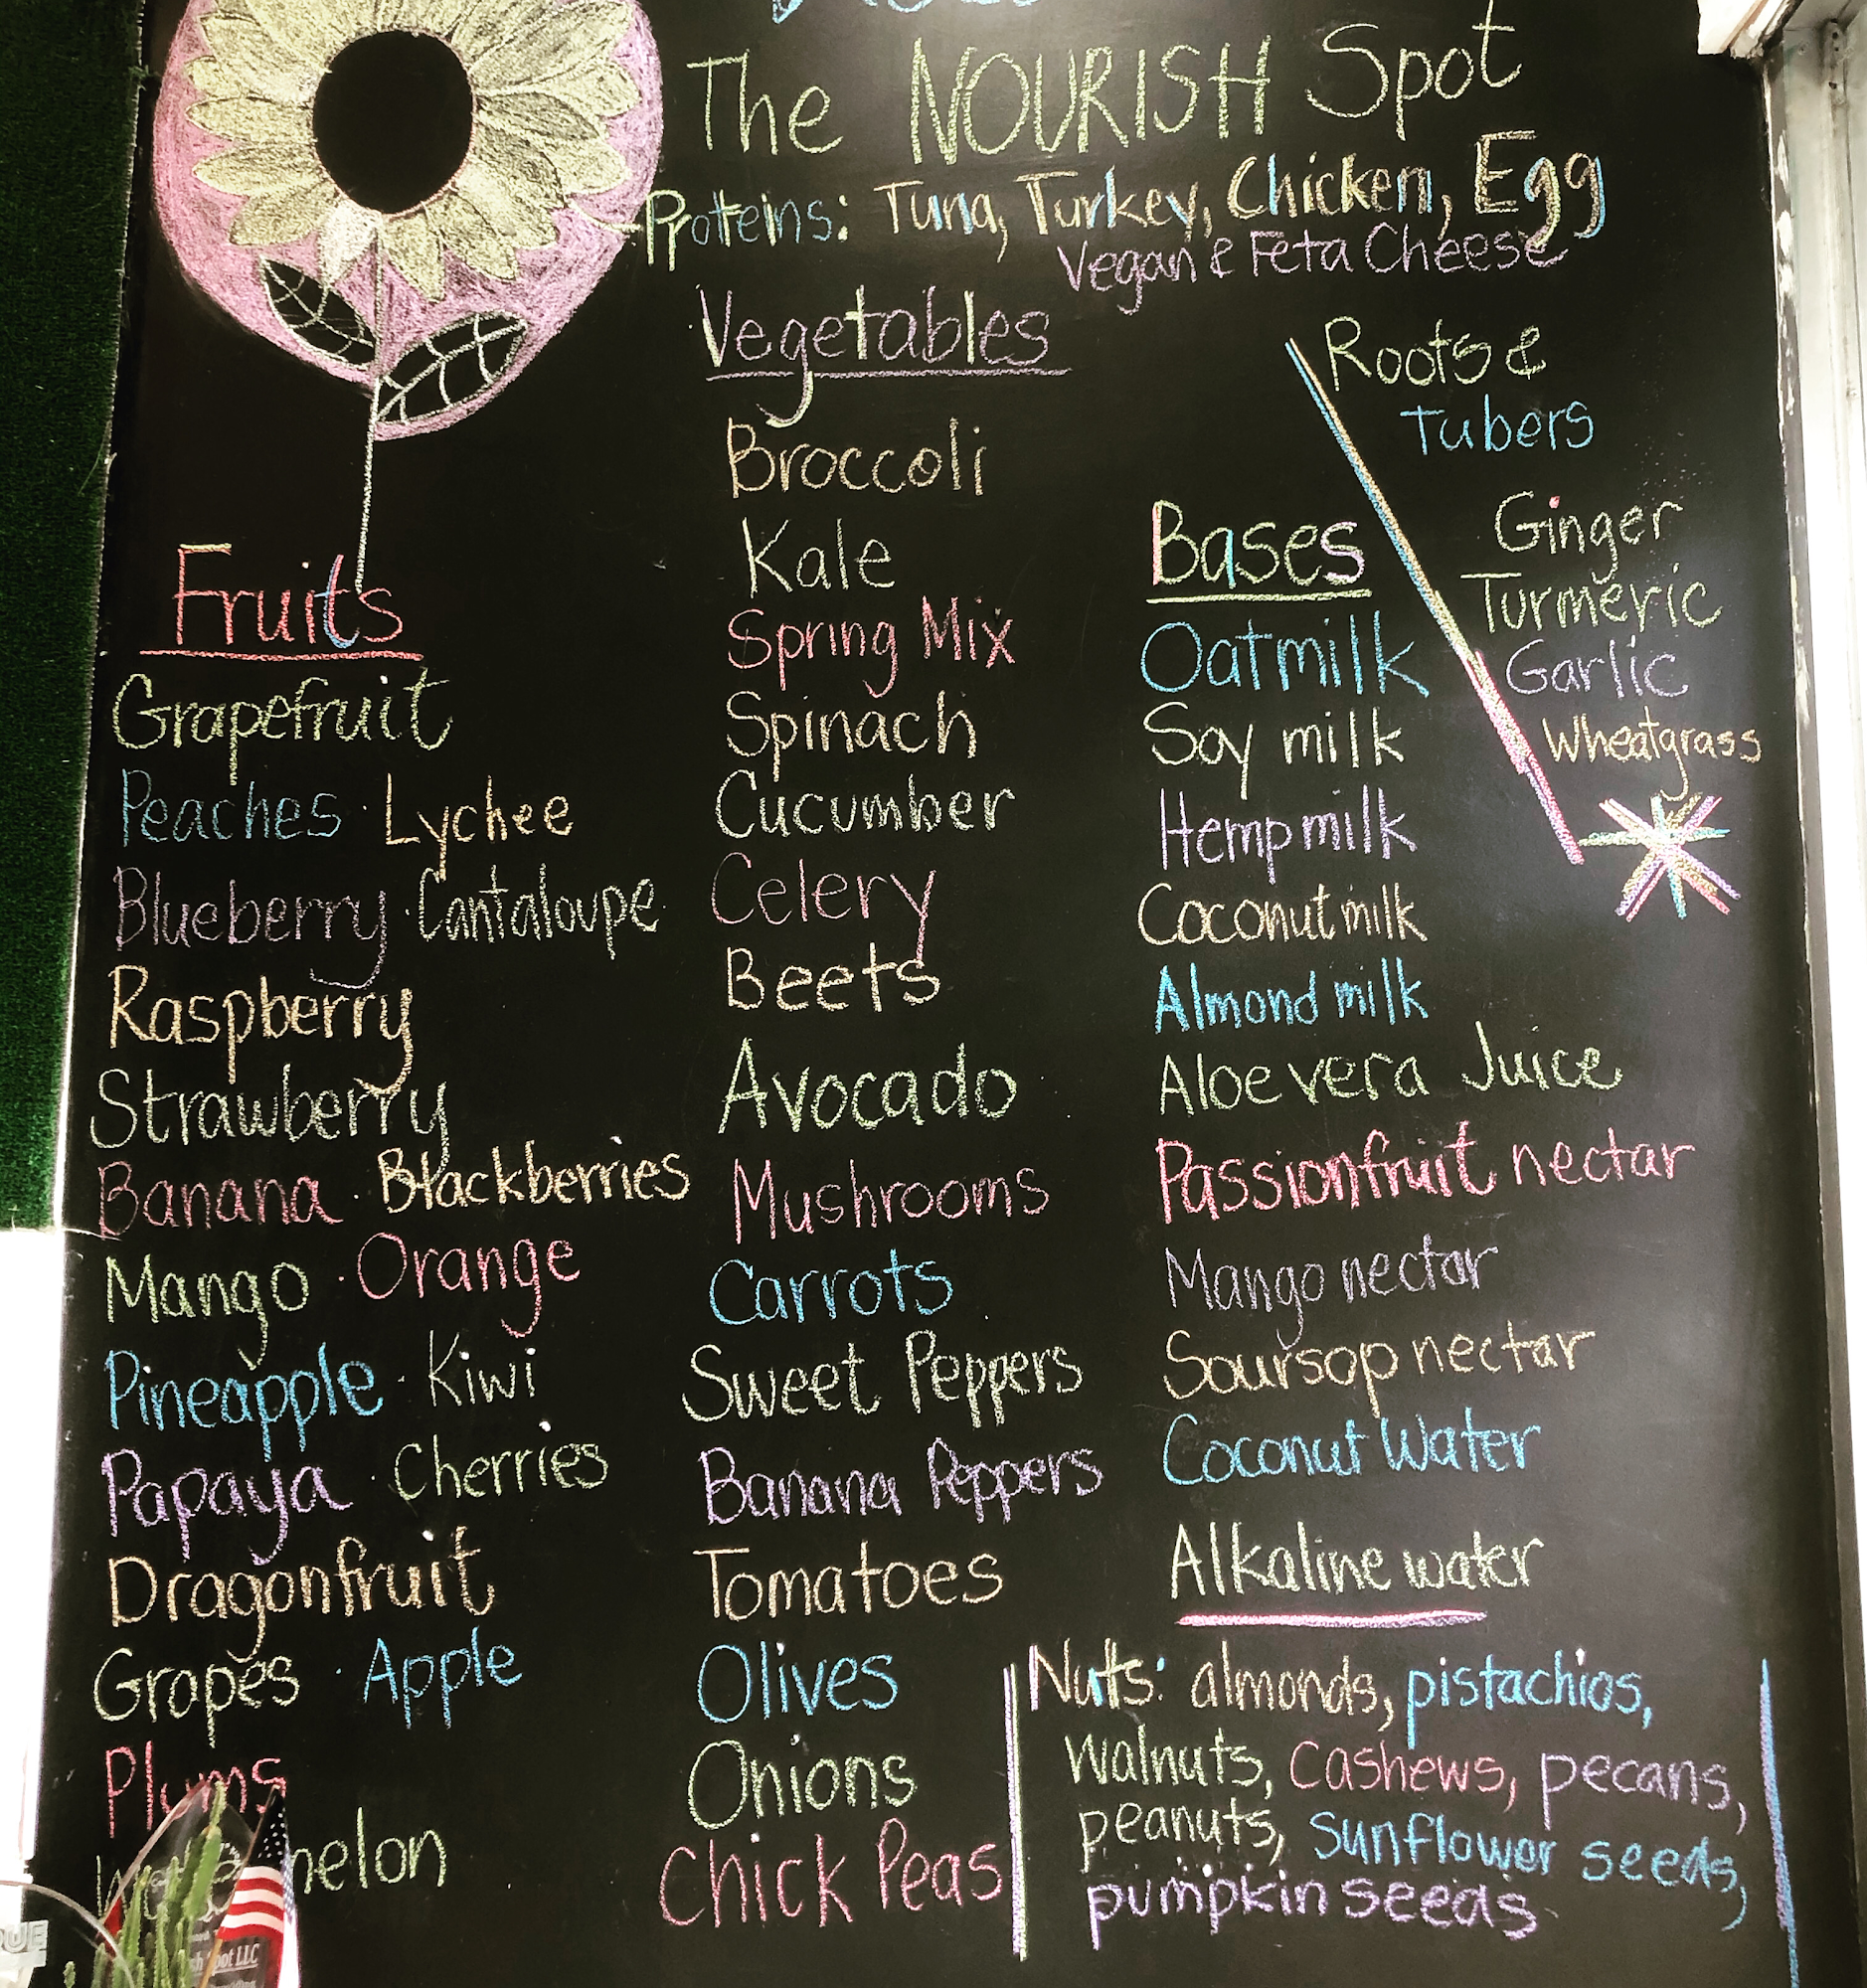 The NOURISH Spot
Proteins: Tuna, Turkey, Chicken, Egg
Vegan & Feta Cheese
Fruits
Grapefruit
Peaches · Lychee
Blueberry · Cantaloupe
Raspberry
Strawberry
Banana · Blackberries
Mango · Orange
Pineapple · Kiwi
Papaya · Cherries
Dragonfruit
Grapes · Apple
Plums
melon
Vegetables
Broccoli
Kale
Spring Mix
Spinach
Cucumber
Celery
Beets
Avocado
Mushrooms
Carrots
Sweet Peppers
Banana Peppers
Tomatoes
Olives
Onions
Chick Peas
Bases
Oatmilk
Soy milk
Hemp milk
Coconut milk
Almond milk
Aloe vera Juice
Passionfruit nectar
Mango nectar
Soursop nectar
Coconut Water
Alkaline water
Roots &
Tubers
Ginger
Turmeric
Garlic
Wheatgrass
Nuts: almonds, pistachios,
walnuts, Cashews, pecans,
peanuts, Sunflower seeds,
pumpkin seeds
LLC